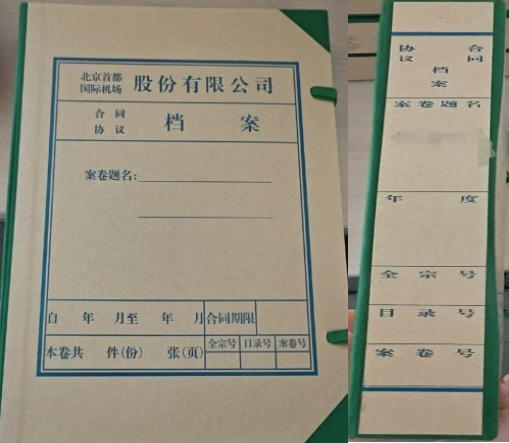 北京首都
国际机场 股份有限公司
合同
协议 档案
案卷题名:
自 年 月至 年 月 合同期限
本卷共 件(份) 张(页) 全宗号 目录号 案卷号
合同
协议
档
案
案卷题名
年度
全宗号
目录号
案卷号